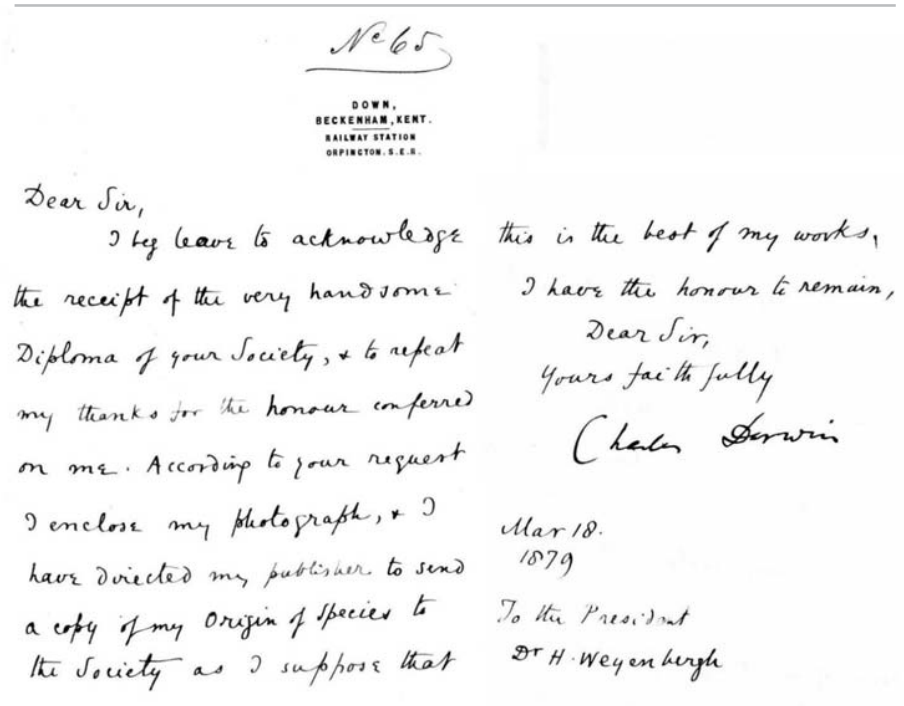 No 65
DOWN,
BECKENHAM, KENT.
RAILWAY STATION
ORPINGTON. S.E.R.
Dear Sir,
I beg leave to acknowledge
the receipt of the very handsome
Diploma of your Society, & to repeat
my thanks for the honour conferred
on me. According to your request
I enclose my photograph, & I
have directed my publisher to send
a copy of my Origin of Species to
the Society as I suppose that
this is the best of my works,
I have the honour to remain,
Dear Sir,
Yours faithfully
Charles Darwin
Mar 18.
1879
To the President
Dr H. Weyenbergh